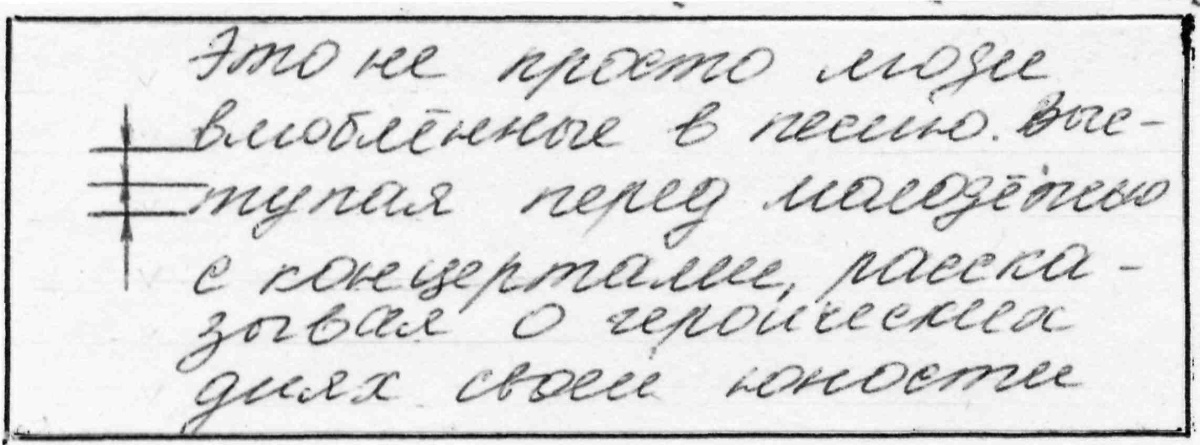 Это не просто люди
влюблённые в песню. Выс-
тупая перед молодёжью
с концертами, расска-
зывая о героических
днях своей юности